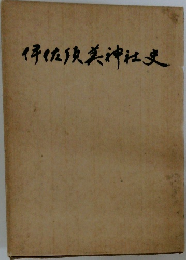 伊佐須美神社史